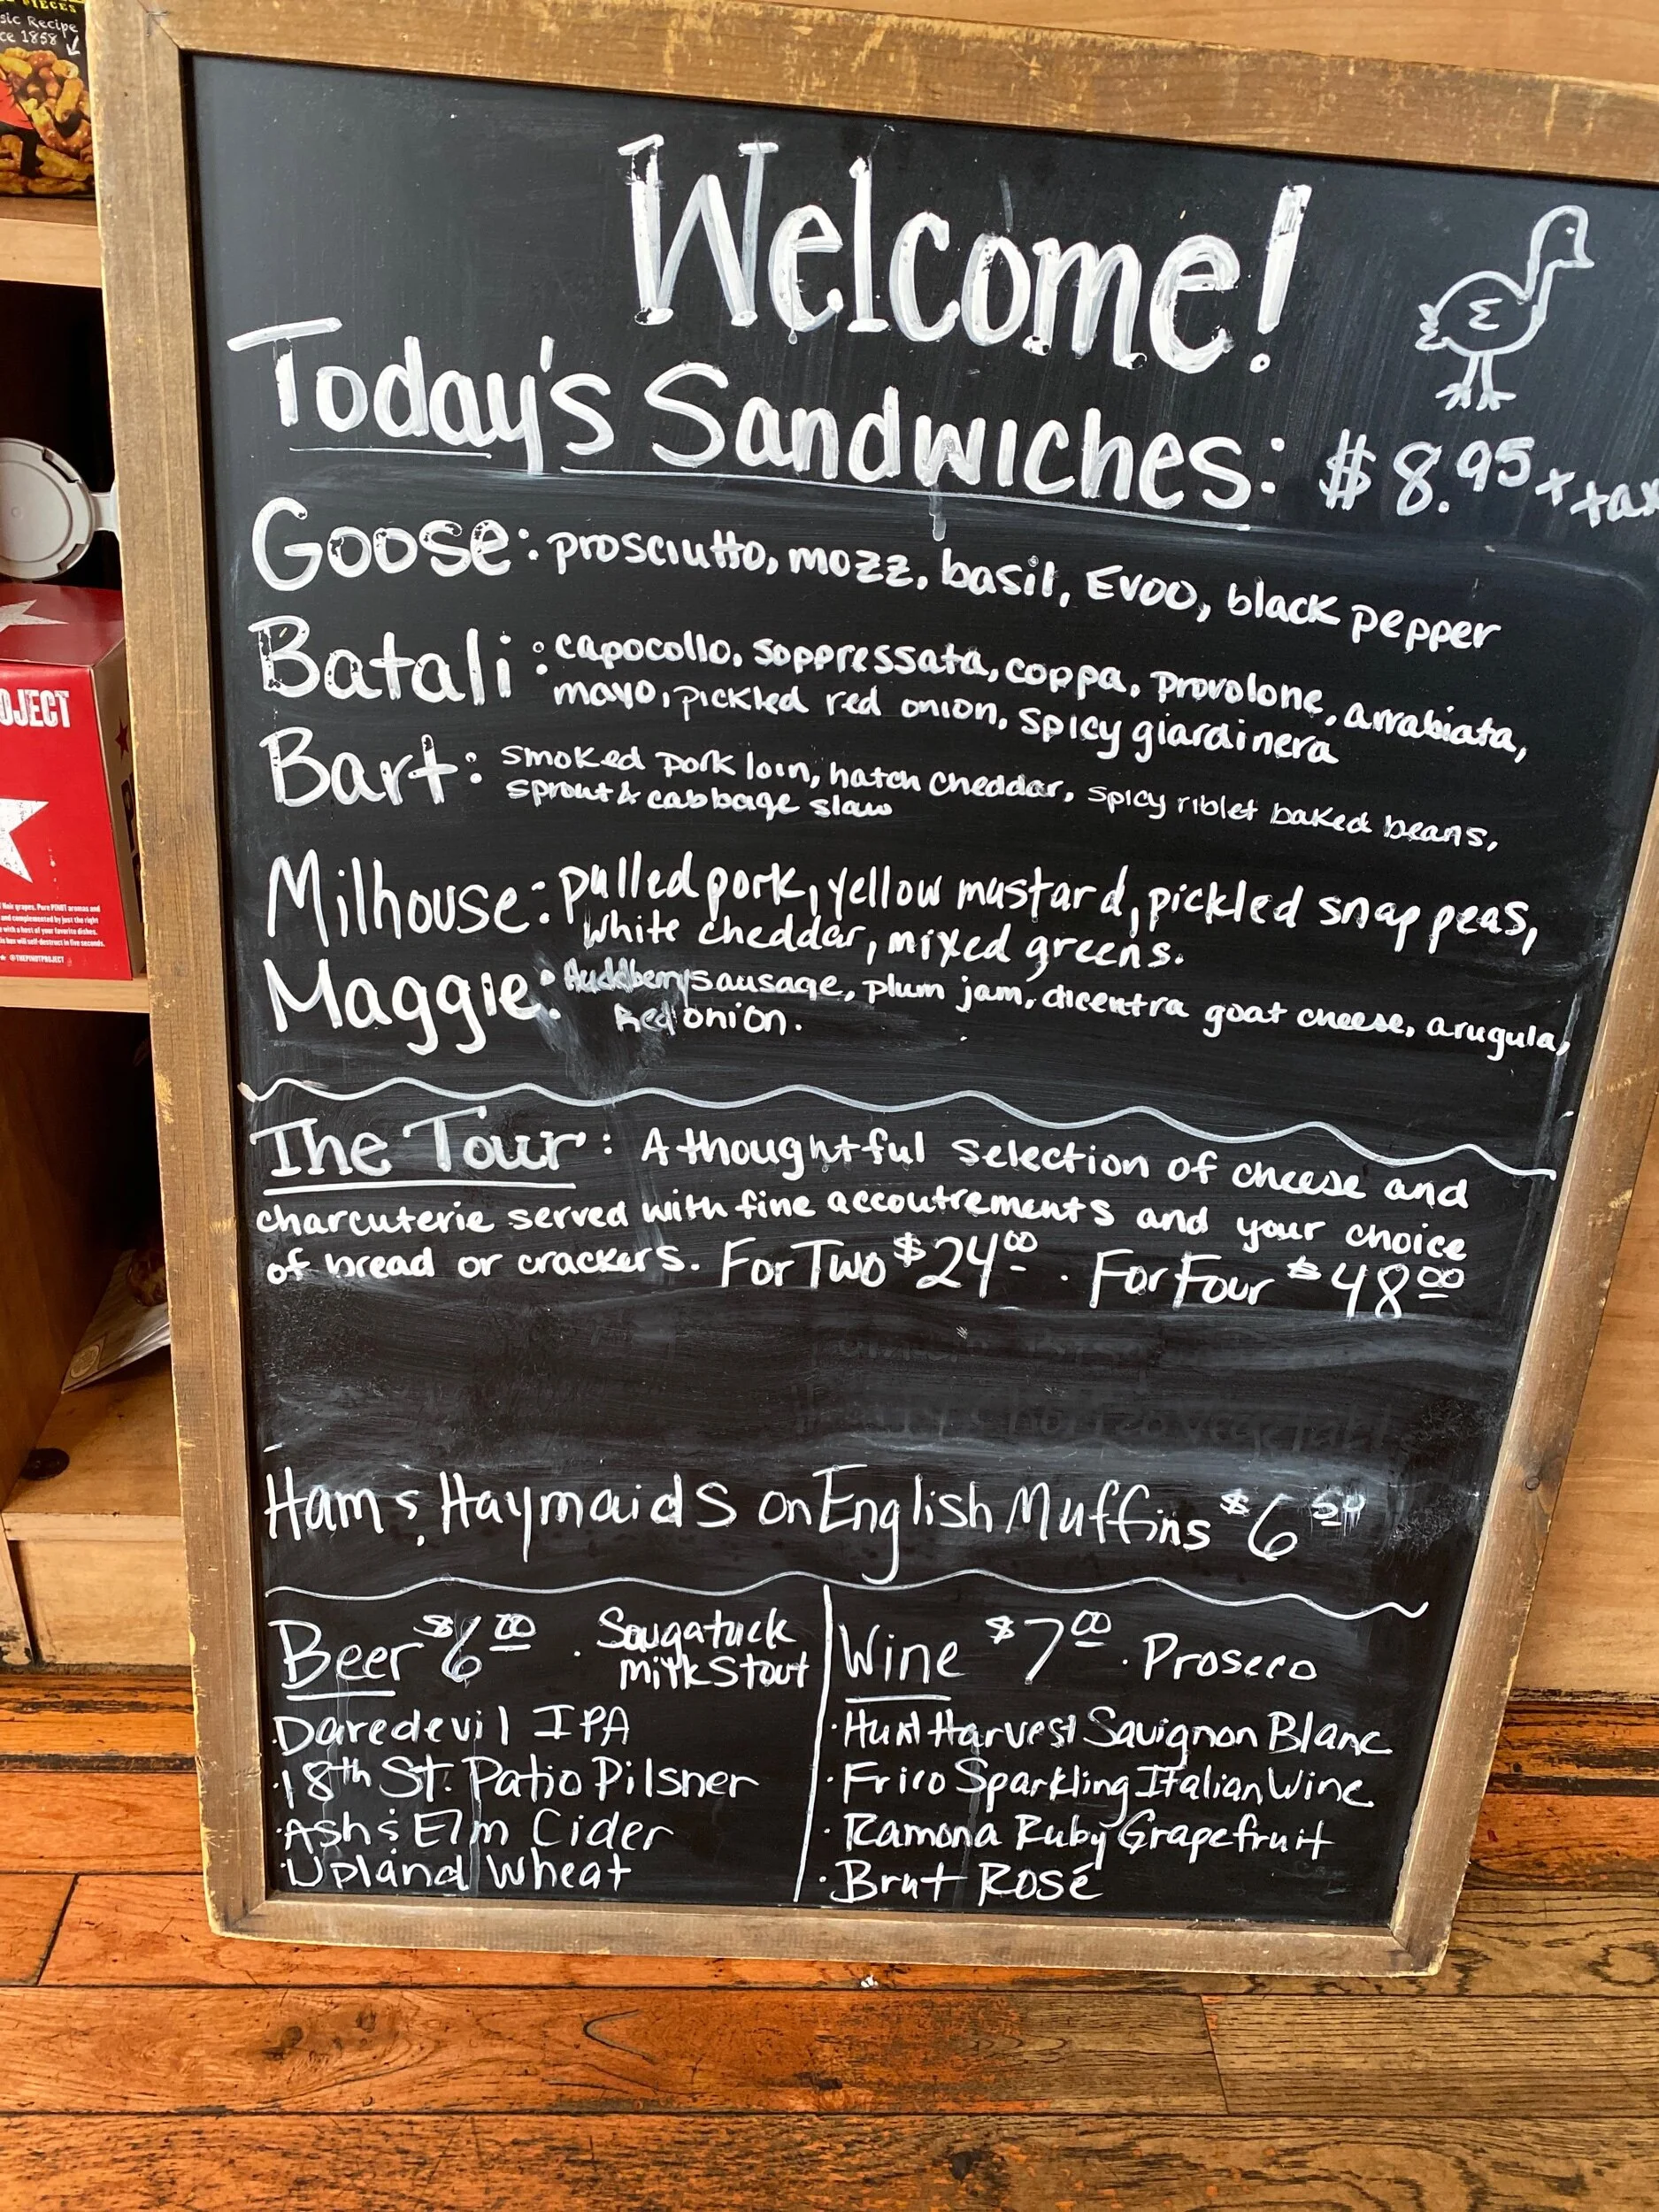 PIECES
sic Recipe
ce 1858
Welcome!
Today's Sandwiches: $8.95 + tax
Goose: prosciutto, mozz, basil, EVOO, black pepper
Batali: capocollo, soppressata, coppa, provolone, arrabiata,
mayo, pickled red onion, spicy giardinera
Bart: smoked pork loin, hatch cheddar, spicy riblet baked beans,
sprout & cabbage slaw
Milhouse: pulled pork, yellow mustard, pickled snap peas,
white cheddar, mixed greens.
Maggie: Huckleberry sausage, plum jam, dicentra goat cheese, arugula,
Red onion.
The Tour: A thoughtful selection of cheese and
charcuterie served with fine accoutrements and your choice
of bread or crackers. For Two $24.00 . For Four $48.00
Ham & Haymaids on English Muffins $6
Beer $6.00 · Saugatuck
Milk Stout
· Daredevil IPA
· 18th St. Patio Pilsner
· Ash & Elm Cider
· Upland Wheat
Wine $7.00 · Prosecco
· Hunt Harvest Sauvignon Blanc
· Frico Sparkling Italian Wine
· Ramona Ruby Grapefruit
· Brut Rosé
OJECT
Noir grapes. Pure PINOT aromas and
and complemented by just the right
with a host of your favorite dishes.
is box will self-destruct in five seconds.
@THEPINOTPROJECT